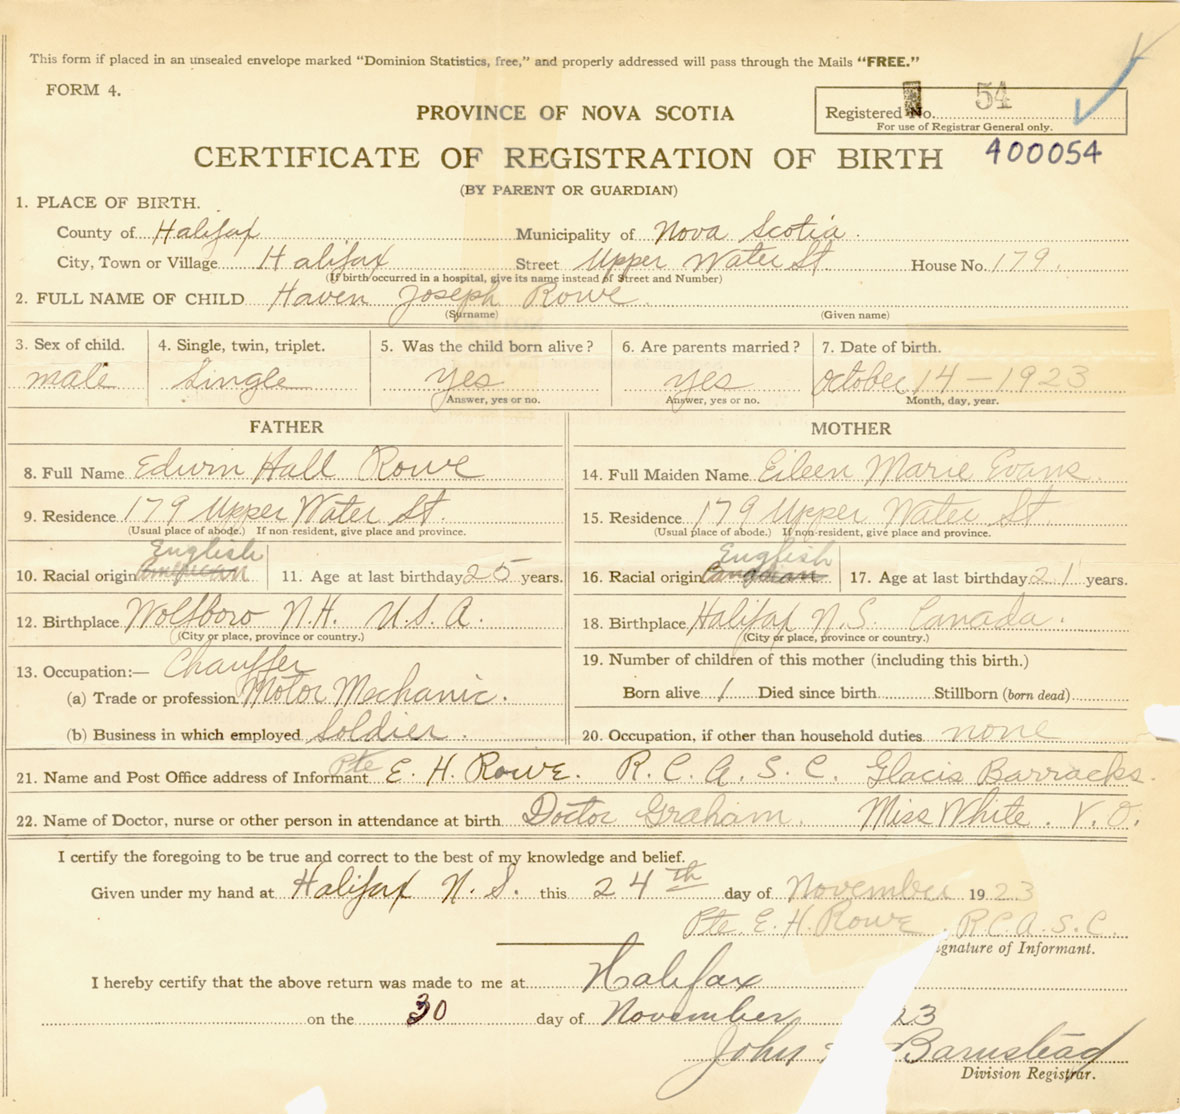 This form if placed in an unsealed envelope marked "Dominion Statistics, free," and properly addressed will pass through the Mails "FREE."
FORM 4.
PROVINCE OF NOVA SCOTIA
Registered No. 54
For use of Registrar General only.
CERTIFICATE OF REGISTRATION OF BIRTH 400054
(BY PARENT OR GUARDIAN)
1. PLACE OF BIRTH.
County of Halifax Municipality of Nova Scotia.
City, Town or Village Halifax Street Upper Water St. House No. 179
(If birth occurred in a hospital, give its name instead of Street and Number)
2. FULL NAME OF CHILD Haven Joseph Rowe.
(Surname) (Given name)
3. Sex of child. 4. Single, twin, triplet. 5. Was the child born alive? 6. Are parents married? 7. Date of birth.
male Single yes yes October 14 - 1923
Answer, yes or no. Answer, yes or no. Month, day, year.
FATHER MOTHER
8. Full Name Edwin Hall Rowe 14. Full Maiden Name Eileen Marie Evans.
9. Residence 179 Upper Water St. 15. Residence 179 Upper Water St.
(Usual place of abode.) If non-resident, give place and province. (Usual place of abode.) If non-resident, give place and province.
English English
10. Racial origin American 11. Age at last birthday 25 years. 16. Racial origin 17. Age at last birthday 21 years.
12. Birthplace Wolfboro N.H. U.S.A. 18. Birthplace Halifax N.S. Canada.
(City or place, province or country.) (City or place, province or country.)
13. Occupation:— Chauffer 19. Number of children of this mother (including this birth.)
(a) Trade or profession Motor Mechanic. Born alive 1 Died since birth Stillborn (born dead)
(b) Business in which employed Soldier. 20. Occupation, if other than household duties none
21. Name and Post Office address of Informant Pte E. H. Rowe. R. C. A. S. C. Glacis Barracks.
22. Name of Doctor, nurse or other person in attendance at birth Doctor Graham. Miss White. V. O.
I certify the foregoing to be true and correct to the best of my knowledge and belief.
Given under my hand at Halifax N. S. this 24th day of November 1923
Pte. E. H. Rowe. R.C.A.S.C.
ignature of Informant.
I hereby certify that the above return was made to me at Halifax
on the 30 day of November 23
John Barnstead
Division Registrar.